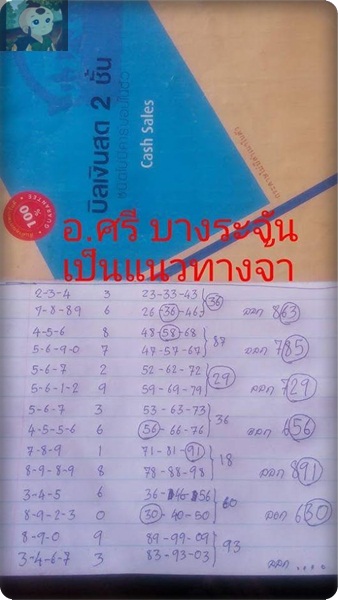 บิลเงินสด 2 ชั้น
Cash Sales
100
%
GUARANTEE
อ.ศรี บางระจัน
เป็นแนวทางจา
2-3-4 3 23-33-43 36
7-8-89 6 26-36-46 ออก 863
4-5-6 8 48-58-68 87
5-6-9-0 7 47-57-67 ออก 785
5-6-7 2 52-62-72 29
5-6-1-2 9 59-69-79 ออก 729
5-6-7 3 53-63-73 36
4-5-5-6 6 56-66-76 ออก 656
7-8-9 1 71-81-91 18
8-9-8-9 8 78-88-98 ออก 891
3-4-5 6 36-46-56 60
8-9-2-3 0 30-40-50 ออก 630
8-9-0 9 89-99-09 93
3-4-6-7 3 83-93-03 ออก ....